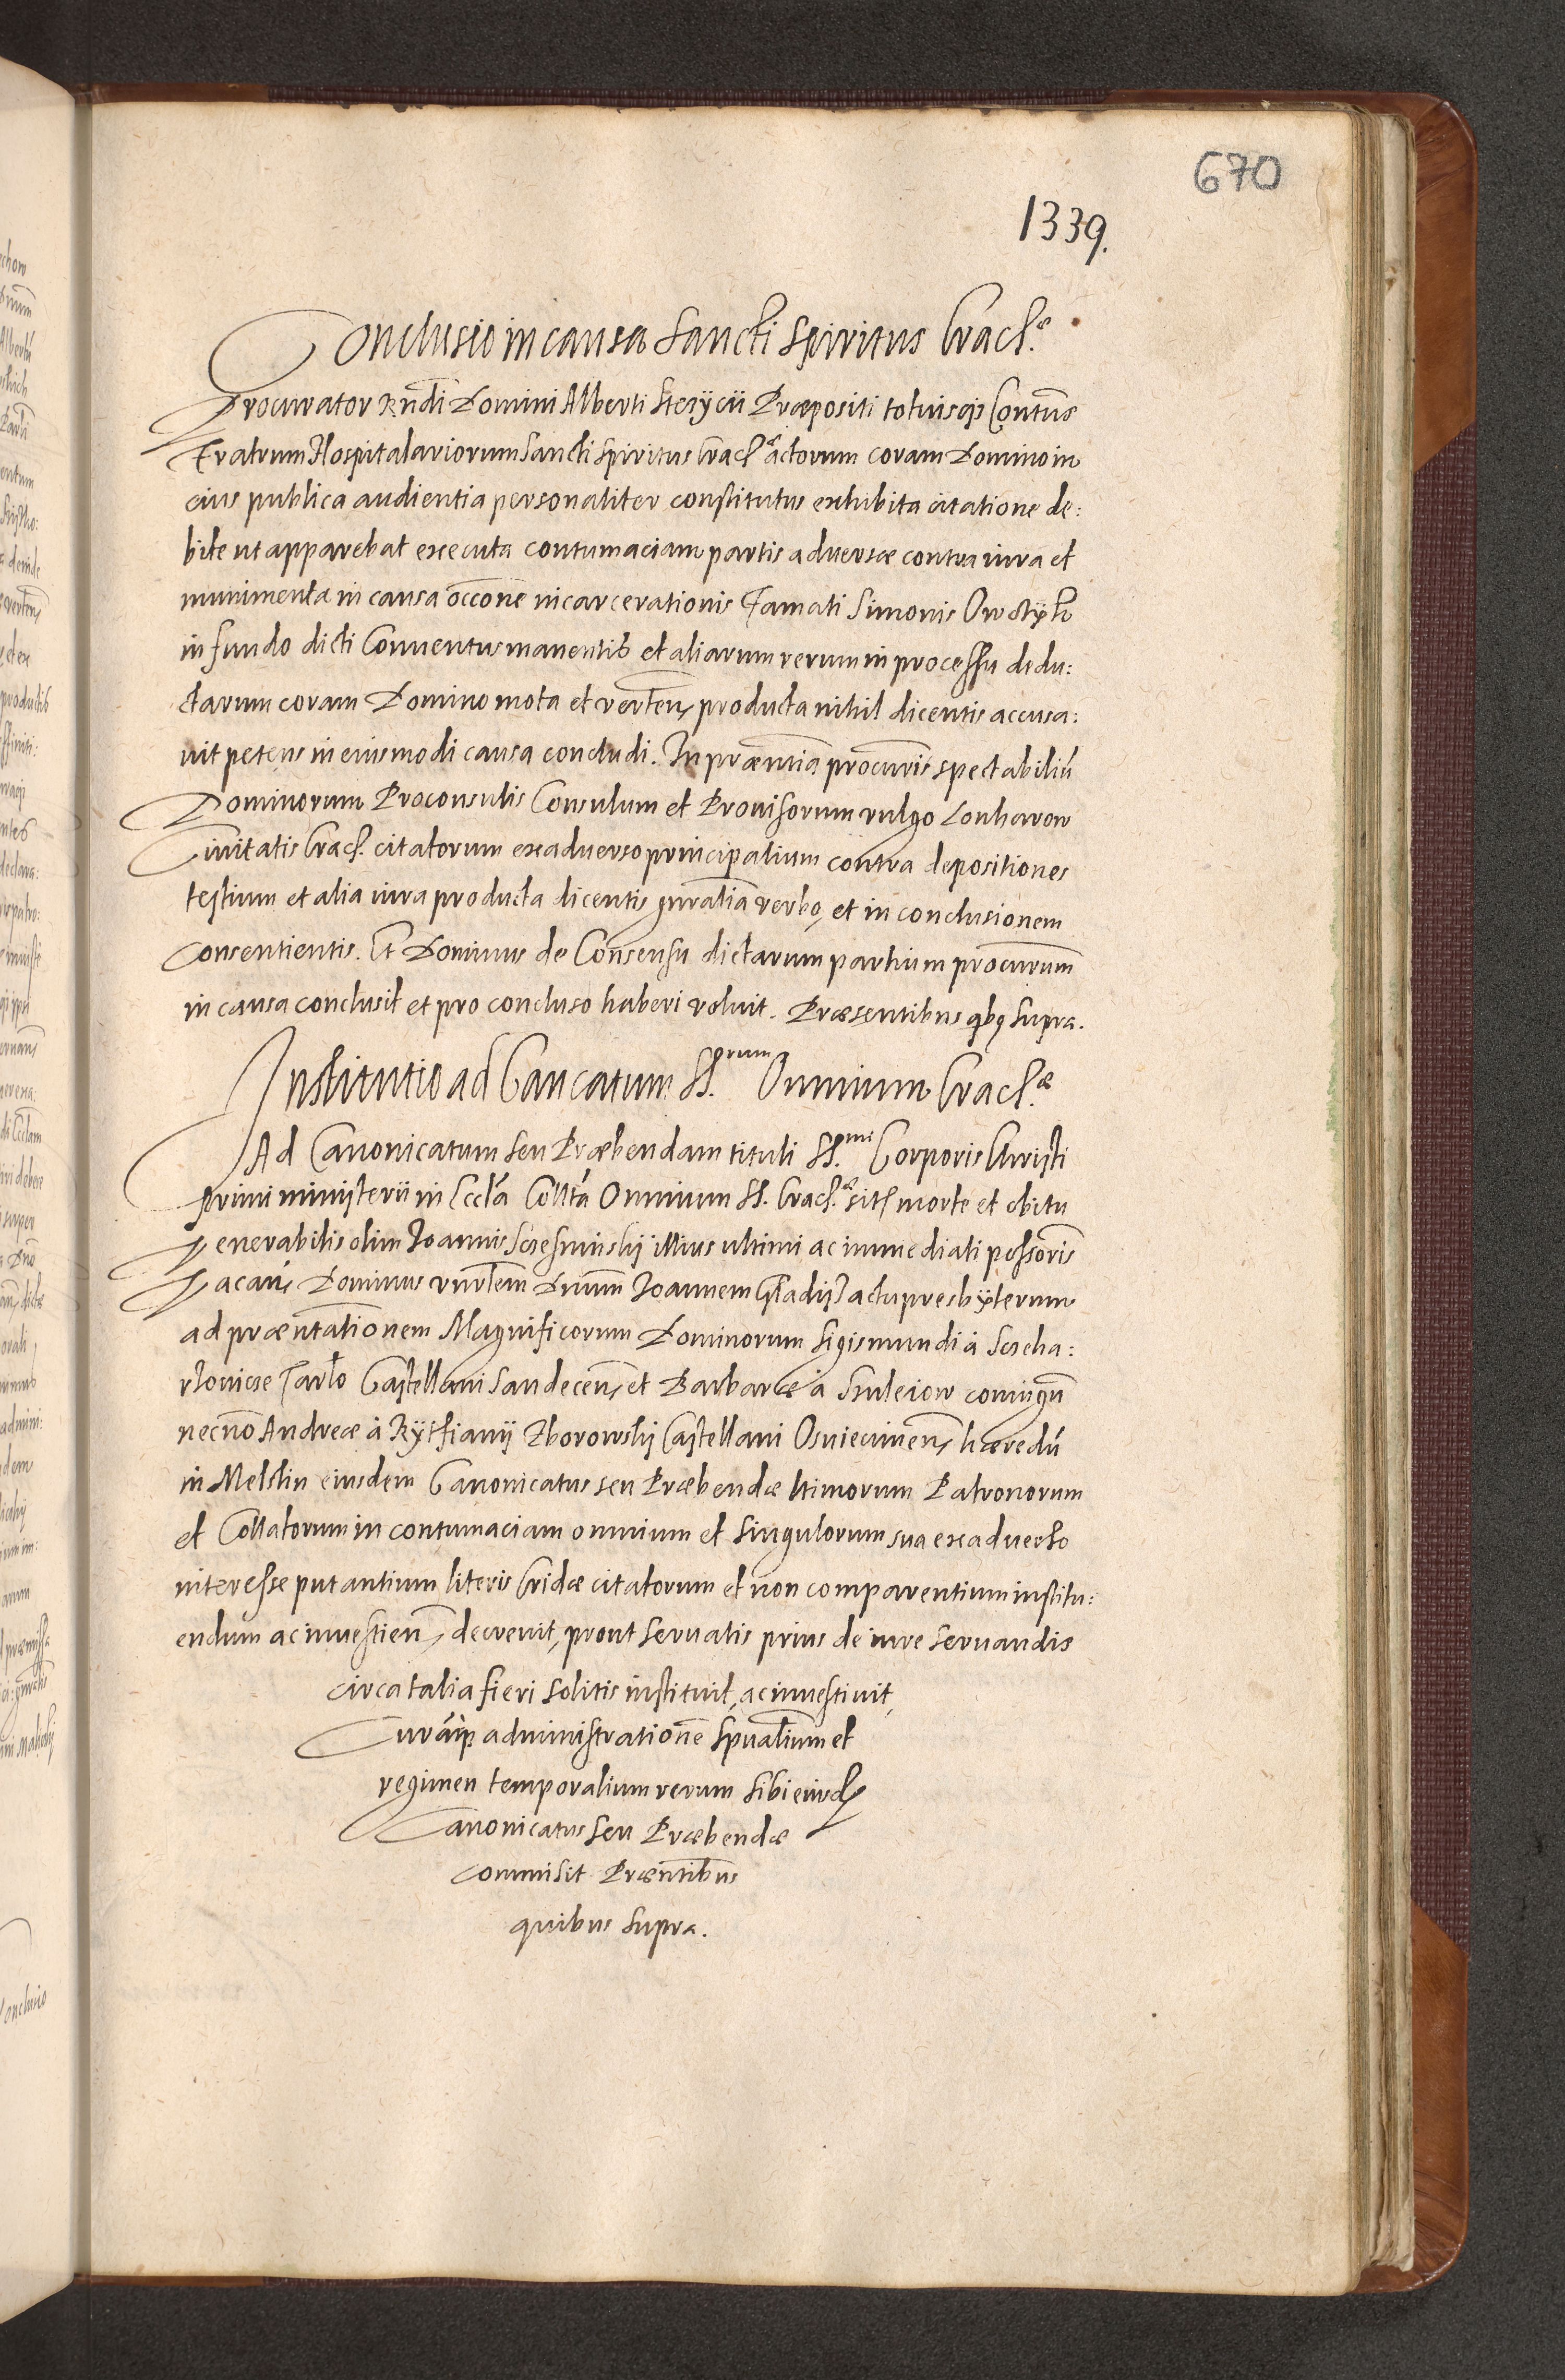 670
1339.
Conclusio in causa Sancti Spiritus Crac.æ
Procurator Rndi Domini Alberti Præpositi totiusq₃ Contus
Fratrum Hospitalariorum Sancti Spiritus Crac. actorum coram Domino in
eius publica audientia personaliter constitutus exhibita citatione de:
bite ut apparebat executa contumaciam partis adversæ contra iura et
munimenta in causa occone incarcerationis Famati Simonis
in fundo dicti Conventus manentis et aliarum rerum in processu dedu:
ctarum coram Domino mota et verten, producta nihil dicentis accusa:
vit petens in eiusmodi causa concludi. In præntia procuris spectabiliũ
Dominorum Proconsulis Consulum et Provisorum vulgo Lonherow
Civitatis Crac. citatorum exadverso principalium contra depositiones
testium et alia iura producta dicentis gnralia verbo, et in conclusionem
Consentientis. Et Dominus de Consensu dictarum partium procurum
in causa conclusit et pro concluso haberi voluit. Præsentibus qbq supra.
Institutio ad Cancatum SS.rum Omnium Crac.æ
Ad Canonicatum seu Præbendam tituli SS.mi Corporis Christi
primi ministerii in Eccla Collta Omnium SS. Crac. sit morte et obitu
Venerabilis olim Joannis illius ultimi ac immediati possoris
Vacan, Dominus vnrlem Dnum Joannem actu presbyterum
ad præntationem Magnificorum Dominorum Sigismundi à Sczeka:
rzowicze Tarlo Castellani Sandecen, et Barbaræ à Sculeiow coniugũ
necno Andreæ à Rythfiany Zborowskj Castellani Osuiecimen, hæredũ
in Melstin eiusdem Canonicatus seu Præbendæ ltimorum Patronorum
et Collatorum in contumaciam omnium et singulorum sua exadverso
interesse putantium literis Cridæ citatorum et non comparentium institu:
endum ac investien, decrevit, prout servatis prius de iure servandis
circa talia fieri solitis instituit, ac investivit,
Curamq administratione spualium et
regimen temporalium rerum sibi eiusd
Canonicatus seu Præbendæ
commisit Præntibus
quibus supra.